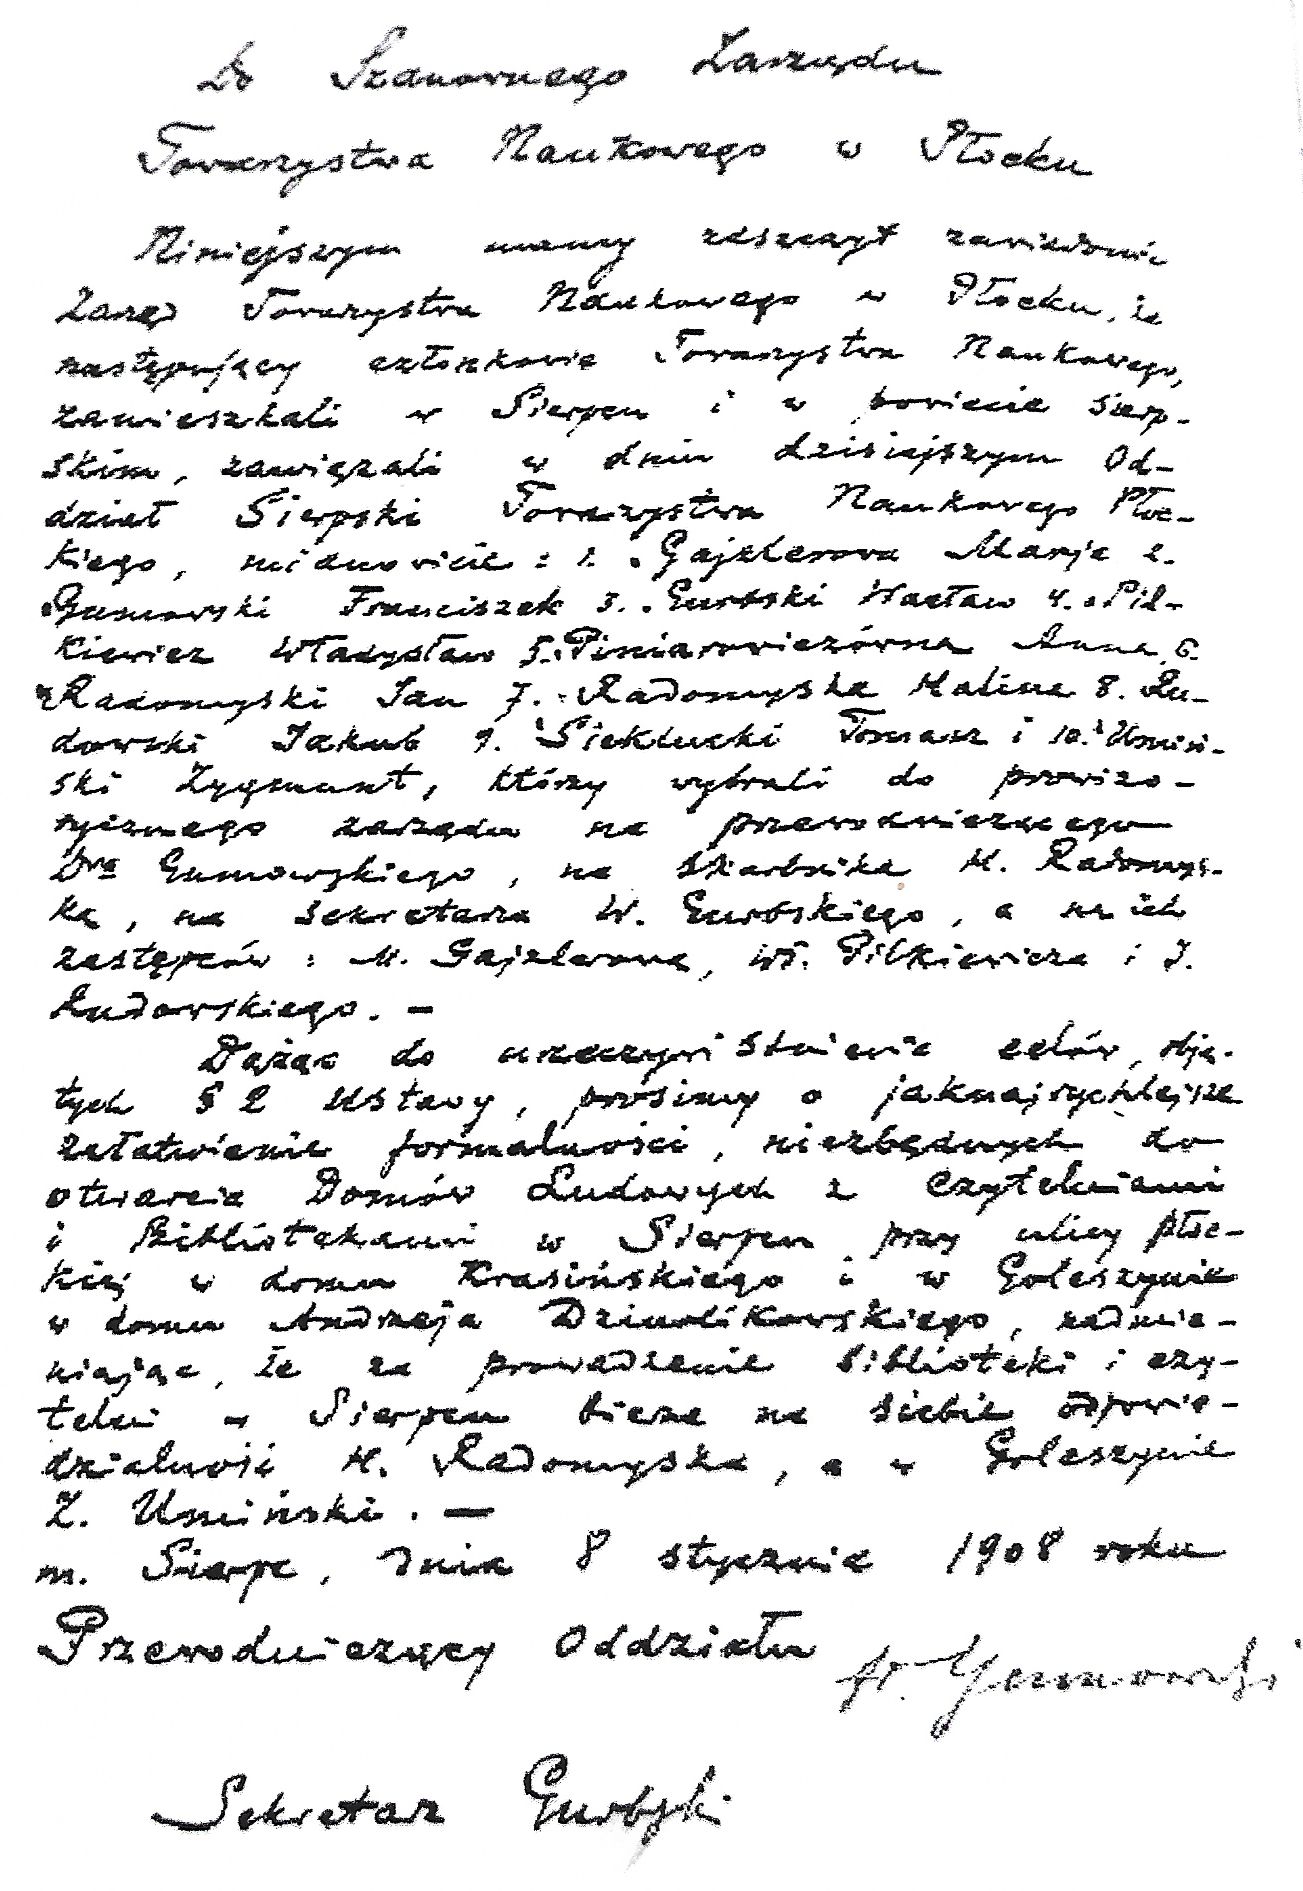 Do Szanownego Zarządu
Towarzystwa Naukowego w Płocku
Niniejszym mamy zaszczyt zawiadomić
Zarząd Towarzystwa Naukowego w Płocku, że
następujący członkowie Towarzystwa Naukowego,
zamieszkali w Sierpcu i w powiecie sierp-
skim, zawiązali w dniu dzisiejszym Od-
dział Sierpski Towarzystwa Naukowego Płoc-
kiego, mianowicie: 1. Gajzlerowa Marja 2.
Gumowski Franciszek 3. Gurbski Wacław 4. Pil-
kiewicz Władysław 5. Piniarowiczówna Anna, 6.
Radomyski Jan 7. Radomyska Halina 8. Ru-
dowski Jakub 9. Sieklucki Tomasz i 10. Umiń-
ski Zygmunt, którzy wybrali do prowizo-
rycznego zarządu na przewodniczącego
Dra Gumowskiego, na skarbnika H. Radomys-
ką, na sekretarza W. Gurbskiego, a na ich
zastępców: M. Gajzlerową, Wł. Pilkiewicza i J.
Rudowskiego. —
Dążąc do urzeczywistnienia celów, obję-
tych § 2 Ustawy, prosimy o jaknajrychlejsze
załatwienie formalności, niezbędnych do
otwarcia Domów Ludowych z Czytelniami
i Bibliotekami w Sierpcu przy ulicy Płoc-
kiej w domu Krasińskiego i w Goleszynie
w domu Andrzeja Dzimolikowskiego, nadmie-
niając, że za prowadzenie biblioteki i czy-
telni w Sierpcu bierze na siebie odpowie-
dzialność H. Radomyska, a w Goleszynie
Z. Umiński. —
m. Sierpc, dnia 8 stycznia 1908 roku
Przewodniczący Oddziału Fr. Gumowski
Sekretarz Gurbski